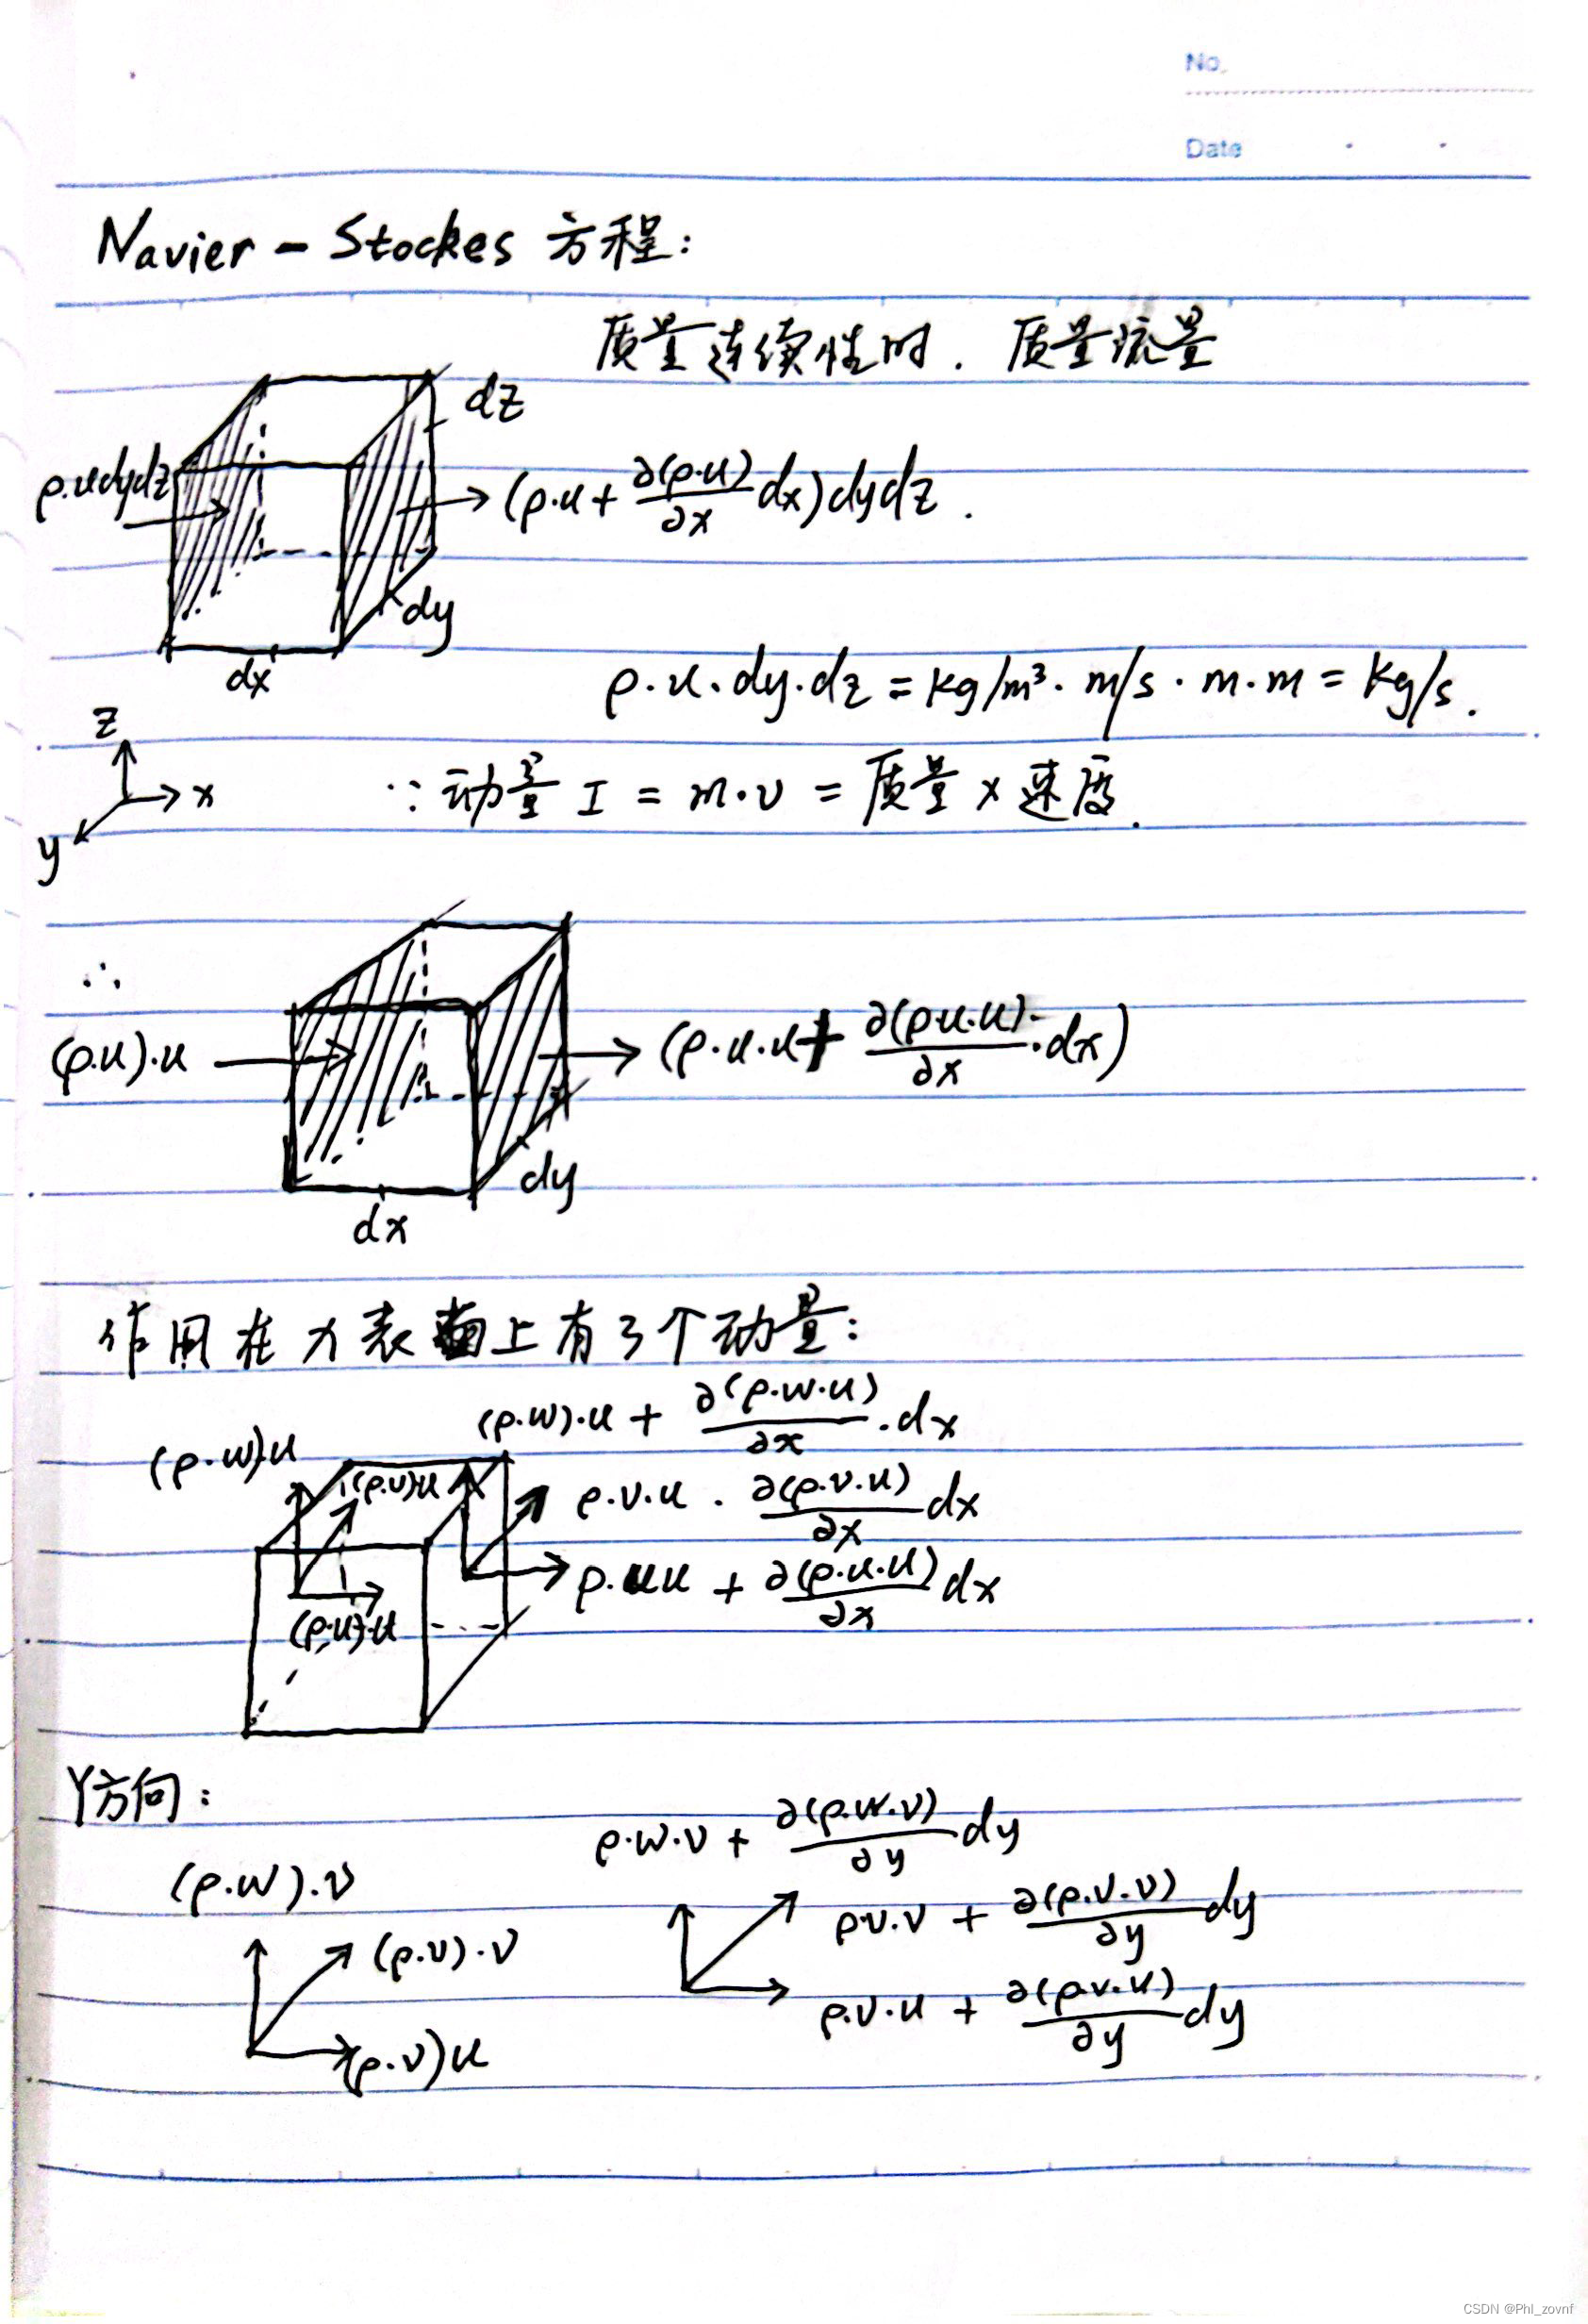 No.
Date
Navier - Stockes 方程:
质量连续性时. 质量流量
dz
ρ·udydz
(ρ·u + ∂(ρ·u)/∂x dx)dydz.
dy
dx
ρ·u·dy·dz = kg/m³ · m/s · m·m = kg/s.
z
x
y
∵ 动量 I = m·v = 质量 × 速度.
∴
(ρ·u)·u
(ρ·u·u + ∂(ρ·u·u)/∂x ·dx)
dy
dx
作用在 x 表面上有3个动量:
(ρ·w)·u + ∂(ρ·w·u)/∂x ·dx
(ρ·w)·u
(ρ·v)·u
ρ·v·u · ∂(ρ·v·u)/∂x dx
ρ·uu + ∂(ρ·u·u)/∂x dx
(ρ·u)·u
Y方向:
ρ·w·v + ∂(ρ·w·v)/∂y dy
(ρ·w)·v
ρ·v·v + ∂(ρ·v·v)/∂y dy
(ρ·v)·v
ρ·v·u + ∂(ρ·v·u)/∂y dy
(ρ·v)u
CSDN @Phl_zovnf